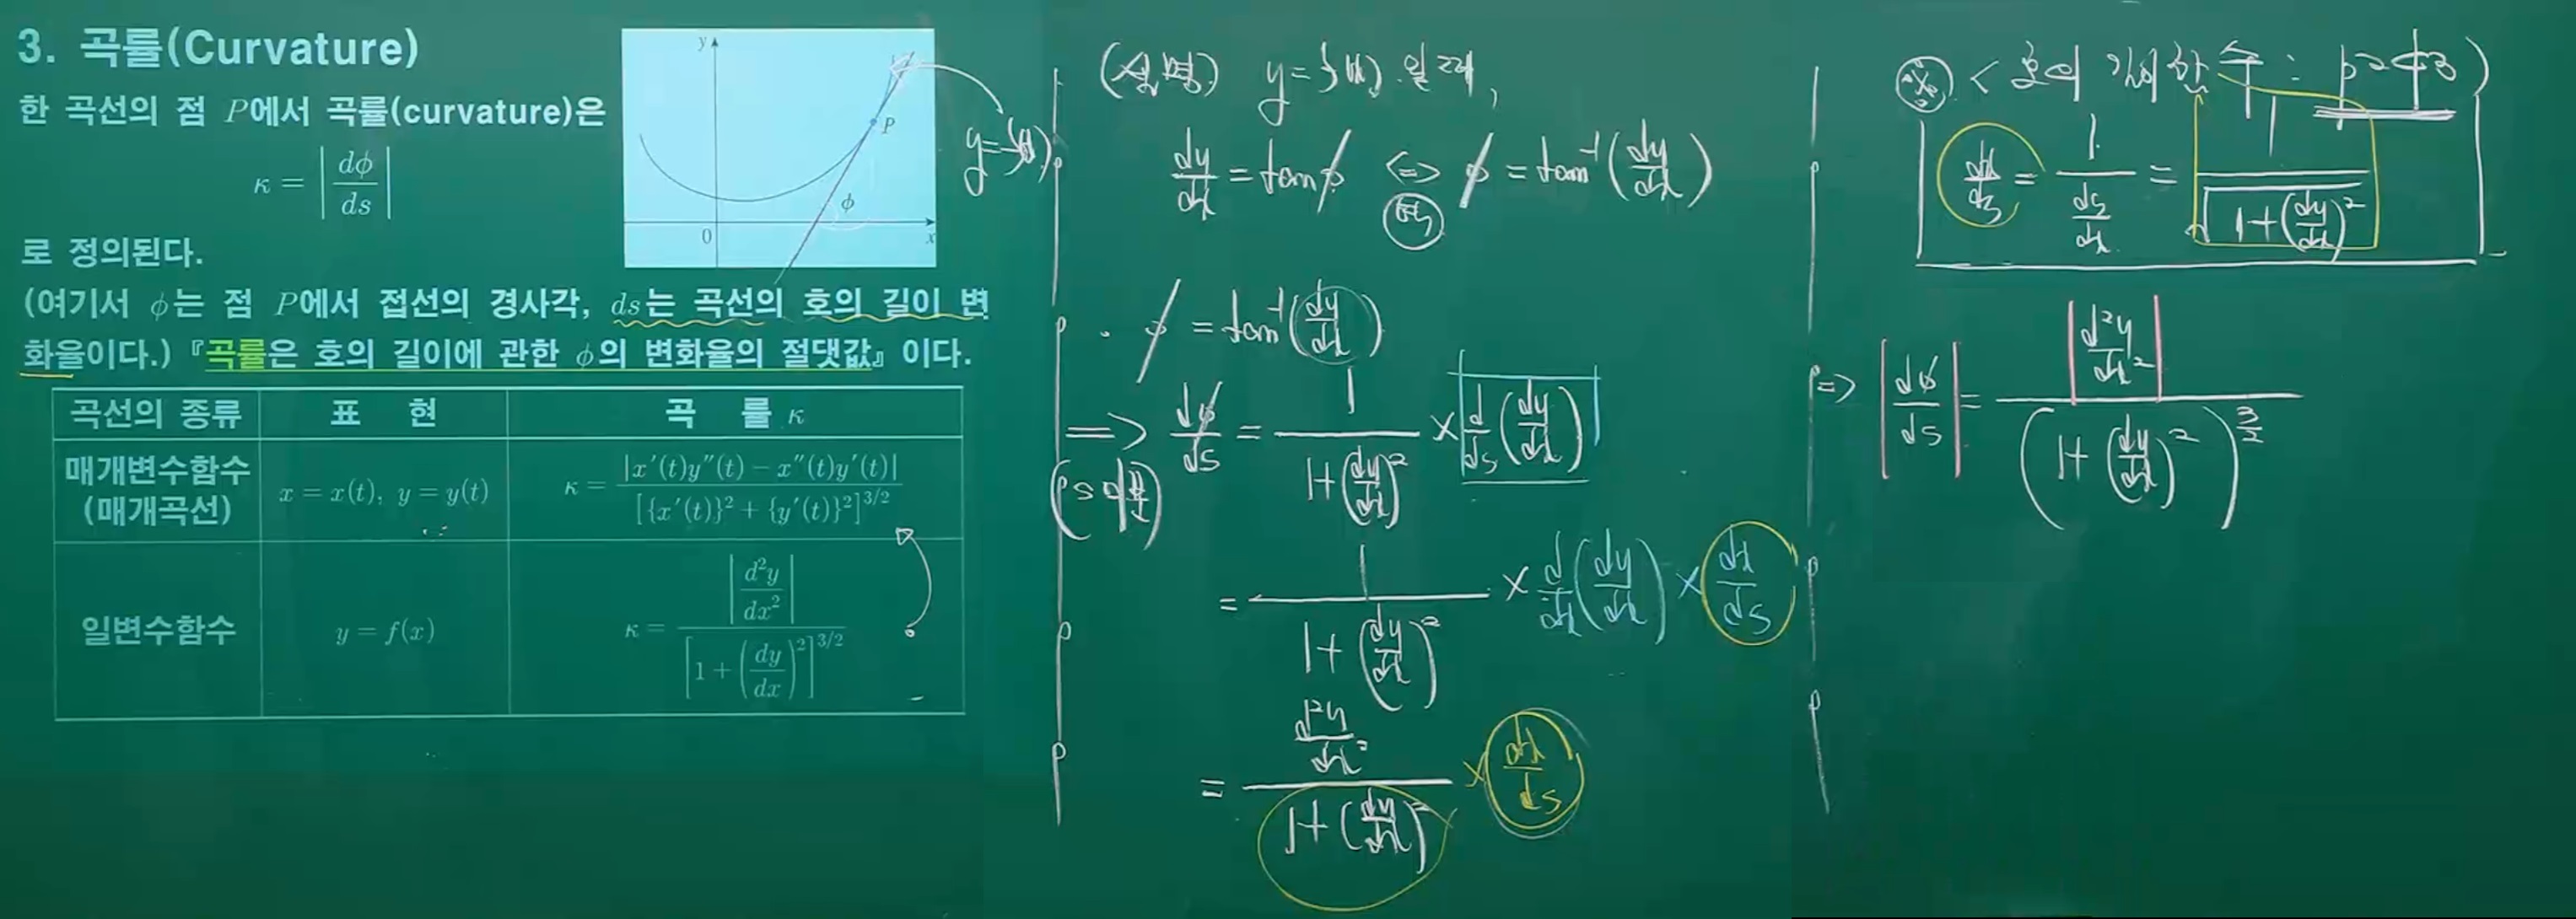 3. 곡률(Curvature)
한 곡선의 점 P에서 곡률(curvature)은
κ = |dϕ/ds|
로 정의된다.
(여기서 ϕ는 점 P에서 접선의 경사각, ds는 곡선의 호의 길이 변
화율이다.) 『곡률은 호의 길이에 관한 ϕ의 변화율의 절댓값』이다.
y
P
ϕ
0
x
y=f(x)
곡선의 종류 표 현 곡 률 κ
매개변수함수
(매개곡선)
x = x(t), y = y(t)
κ = |x′(t)y″(t) − x″(t)y′(t)| / [{x′(t)}² + {y′(t)}²]^3/2
일변수함수
y = f(x)
κ = |d²y/dx²| / [1 + (dy/dx)²]^3/2
(설명) y=f(x) 일 때,
dy/dx = tanϕ ⇔ ϕ = tan⁻¹(dy/dx)
· ϕ = tan⁻¹(dy/dx)
⇒ dϕ/ds = 1/(1+(dy/dx)²) × d/ds(dy/dx)
= 1/(1+(dy/dx)²) × d/dx(dy/dx) × dx/ds
= (d²y/dx²)/(1+(dy/dx)²) × dx/ds
dx/ds = 1/(ds/dx) = 1/√(1+(dy/dx)²)
⇒ |dϕ/ds| = |d²y/dx²| / (1+(dy/dx)²)^3/2